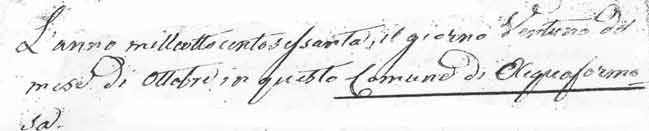 L'anno milleottocentosessanta, il giorno Ventuno del
mese di Ottobre in questo Comune di Acquaformo
sa.